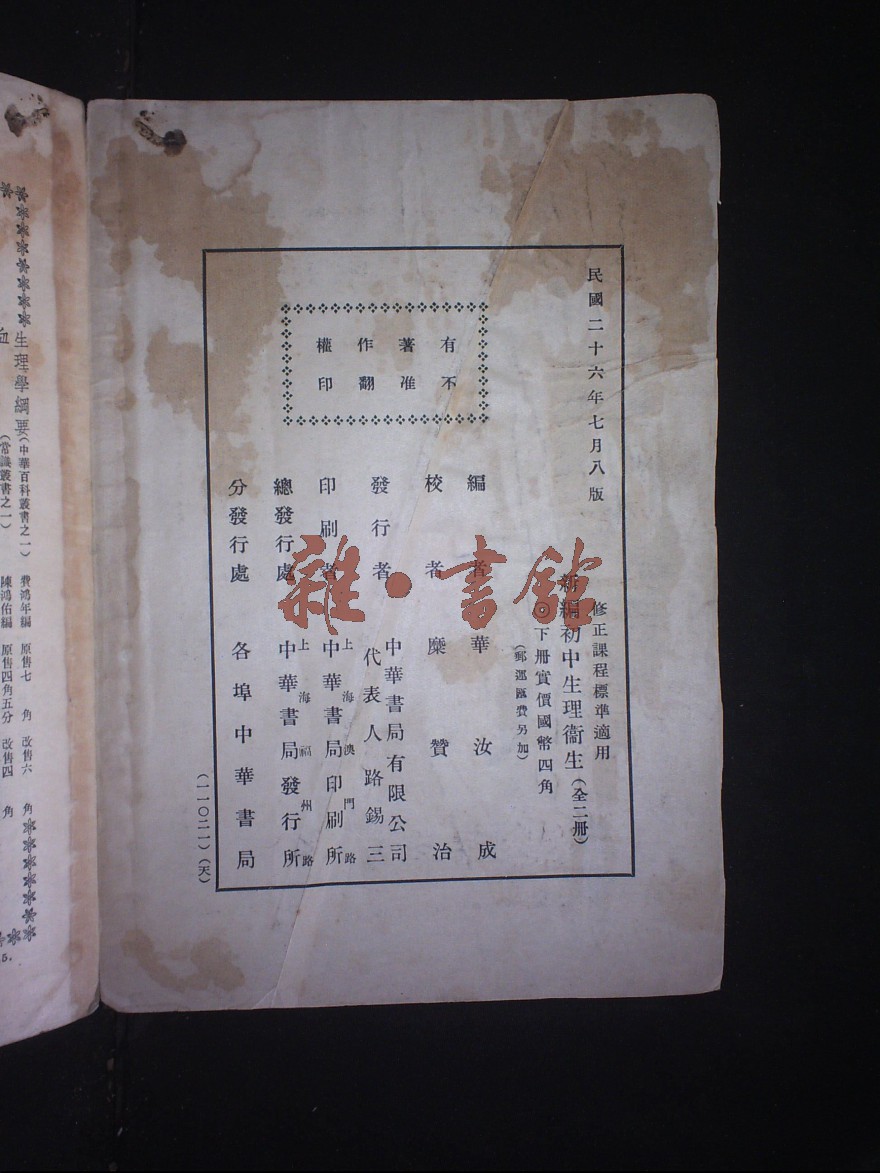 民國二十六年七月八版
修正課程標準適用
新編初中生理衞生(全二冊)
◎下冊實價國幣四角
(郵運匯費另加)
有著作權
不准翻印
編者 華汝成
校者 糜贊治
發行者 中華書局有限公司
代表人路錫三
印刷者 上海澳門路
中華書局印刷所
總發行處 上海福州路
中華書局發行所
分發行處 各埠中華書局
(一一〇二一)(天)
雜·書館
生理學綱要(中華百科叢書之一) 費鴻年編 原售七角 改售六角
血 (常識叢書之一) 陳鴻佑編 原售四角五分 改售四角
5.